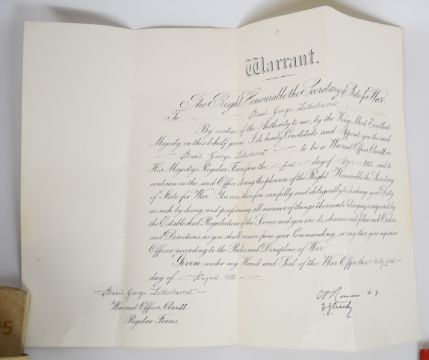 Warrant.
The Right Honourable the Secretary of State for War.
To Basil George
By virtue of the Authority to me, by the King's Most Excellent
Majesty in this behalf given I do hereby Constitute and Appoint you the said
Basil George to be a Warrant Officer, Class II in
His Majesty's Regular Forces from the first day of and to
continue in the said Office during the pleasure of the Right Honourable the Secretary
of State for War. You are therefore carefully and diligently to discharge your Duty
as such by doing and performing all manner of things thereunto belonging as required by
the Established Regulations of the Service, and you are to observe and follow such Orders
and Directions as you shall receive from your Commanding, or any other your superior
Officer according to the Rules and Discipline of War.
Given under my Hand and Seal of the War Office this
day of August
Basil George
Warrant Officer, Class II.
Regular Forces.